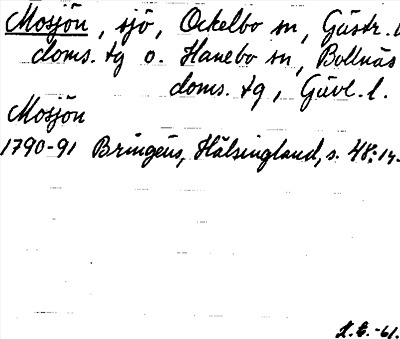 Mosjön, sjö, Ockelbo sn, Gästr.
doms. tg o. Hanebo sn, Bollnäs
doms. tg, Gävl. l.
Mosjön
1790-91 Bringéus, Hälsingland, s. 48; 14.
-61.